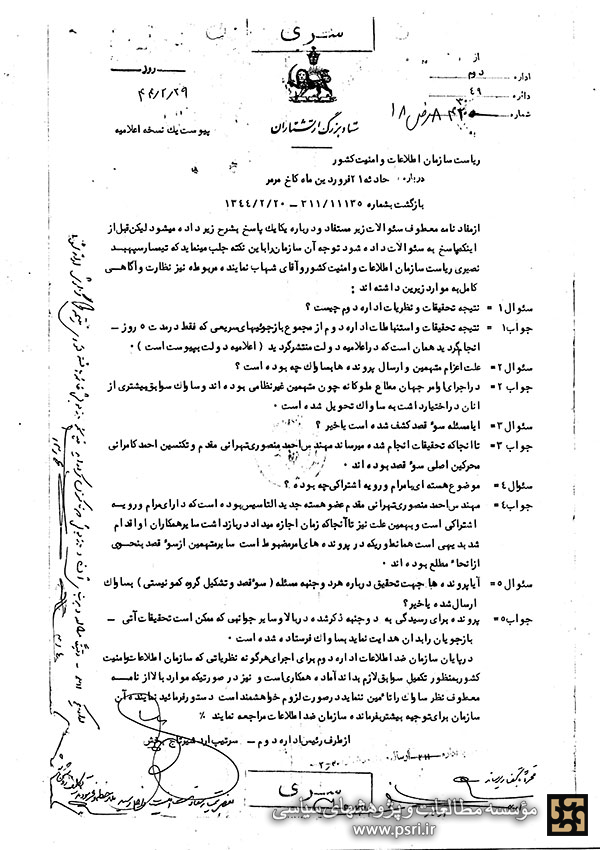 سری
از
اداره دوم
دائره ٤٩
شماره
روز
٤٤/٢/٢٩
پیوست یك نسخه اعلامیه
ستاد بزرگ ارتشتاران
ریاست سازمان اطلاعات و امنیت کشور
درباره حادثه ٢١ فروردین ماه کاخ مرمر
بازگشت بشماره ٣١١/١١١٣٥ - ١٣٤٤/٢/٢٠
ازمفاد نامه معطوف سئوالات زیر مستفاد و درباره یکایك پاسخ بشرح زیر داده میشود لیکن قبل از
اینکه پاسخ به سئوالات داده شود توجه آن سازمان را باین نکته جلب مینماید که تیمسار سپهبد
نصیری ریاست سازمان اطلاعات و امنیت کشور و آقای شهاب نماینده مربوطه نیز نظارت و آگاهی
کامل به موارد زیرین داشته اند :
سئوال ١ = نتیجه تحقیقات و نظریات اداره دوم چیست ؟
جواب ١ = نتیجه تحقیقات و استنباطات اداره دوم از مجموع بازجوئیهای سریعی که فقط در مدت ٥ روز -
انجام گردید همان است که در اعلامیه دولت منتشر گردید ( اعلامیه دولت بپیوست است ) ٠
سئوال ٢ = علت اعزام متهمین و ارسال پرونده ها بساواك چه بوده است ؟
جواب ٢ = در اجرای اوامر جهان مطاع ملوکانه چون متهمین غیرنظامی بوده اند و ساواك سوابق بیشتری از
انان در اختیار داشت به ساواك تحویل شده است ٠
سئوال ٣ = ایا مسئله سو٬ قصد کشف شده است یا خیر ؟
جواب ٣ = تا انجا که تحقیقات انجام شده میرساند مهندس احمد منصوری تهرانی مقدم و تکنسین احمد کامرانی
محرکین اصلی سو٬ قصد بوده اند ٠
سئوال ٤ = موضوع هسته ای با مرام و رویه اشتراکی چه بوده ؟
جواب ٤ = مهندس احمد منصوری تهرانی مقدم عضو هسته جدید التاسیس بوده است که دارای مرام و رویه
اشتراکی است و بهمین علت نیز تا آنجا که زمان اجازه میداد در بازداشت سایر همکاران او اقدام
شد بدیهی است همانطوریکه در پرونده های امر مضبوط است سایر متهمین از سو٬ قصد بنحوی
از انحا٬ مطلع بوده اند ٠
سئوال ٥ = آیا پرونده ها جهت تحقیق درباره هر دو جنبه مسئله ( سو٬ قصد و تشکیل گروه کمونیستی ) بساواك
ارسال شده یا خیر ؟
جواب ٥ = پرونده برای رسیدگی به دو جنبه ذکر شده در بالا و سایر جوانبی که ممکن است تحقیقات آتی -
بازجویان را بدان هدایت نماید بساواك فرستاده شده است ٠
در پایان سازمان ضد اطلاعات اداره دوم برای اجرای هرگونه نظریاتی که سازمان اطلاعات و امنیت
کشور بمنظور تکمیل سوابق لازم بداند آماده همکاری است و نیز در صورتیکه موارد بالا از نامه
معطوف نظر ساواك را تا٬مین ننماید در صورت لزوم خواهشمند است دستور فرمائید نماینده آن
سازمان برای توجیه بیشتر فرمانده سازمان ضد اطلاعات مراجعه نمایند ٪
از طرف رئیس اداره دوم - سرتیپ
سری
مؤسسه مطالعات و پژوهشهای سیاسی
www.psri.ir